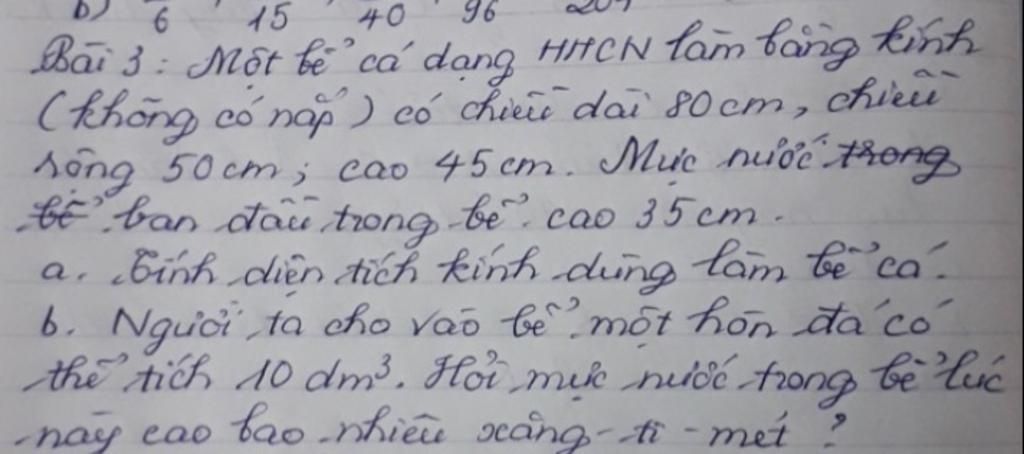 b) 6 15 40 96 204
Bài 3: Một bể cá dạng HHCN làm bằng kính
(không có nắp) có chiều dài 80cm, chiều
rộng 50cm; cao 45cm. Mực nước trong
bể ban đầu trong bể cao 35cm.
a. Tính diện tích kính dùng làm bể cá.
b. Người ta cho vào bể một hòn đá có
thể tích 10 dm³. Hỏi mực nước trong bể lúc
này cao bao nhiêu xăng-ti-mét?